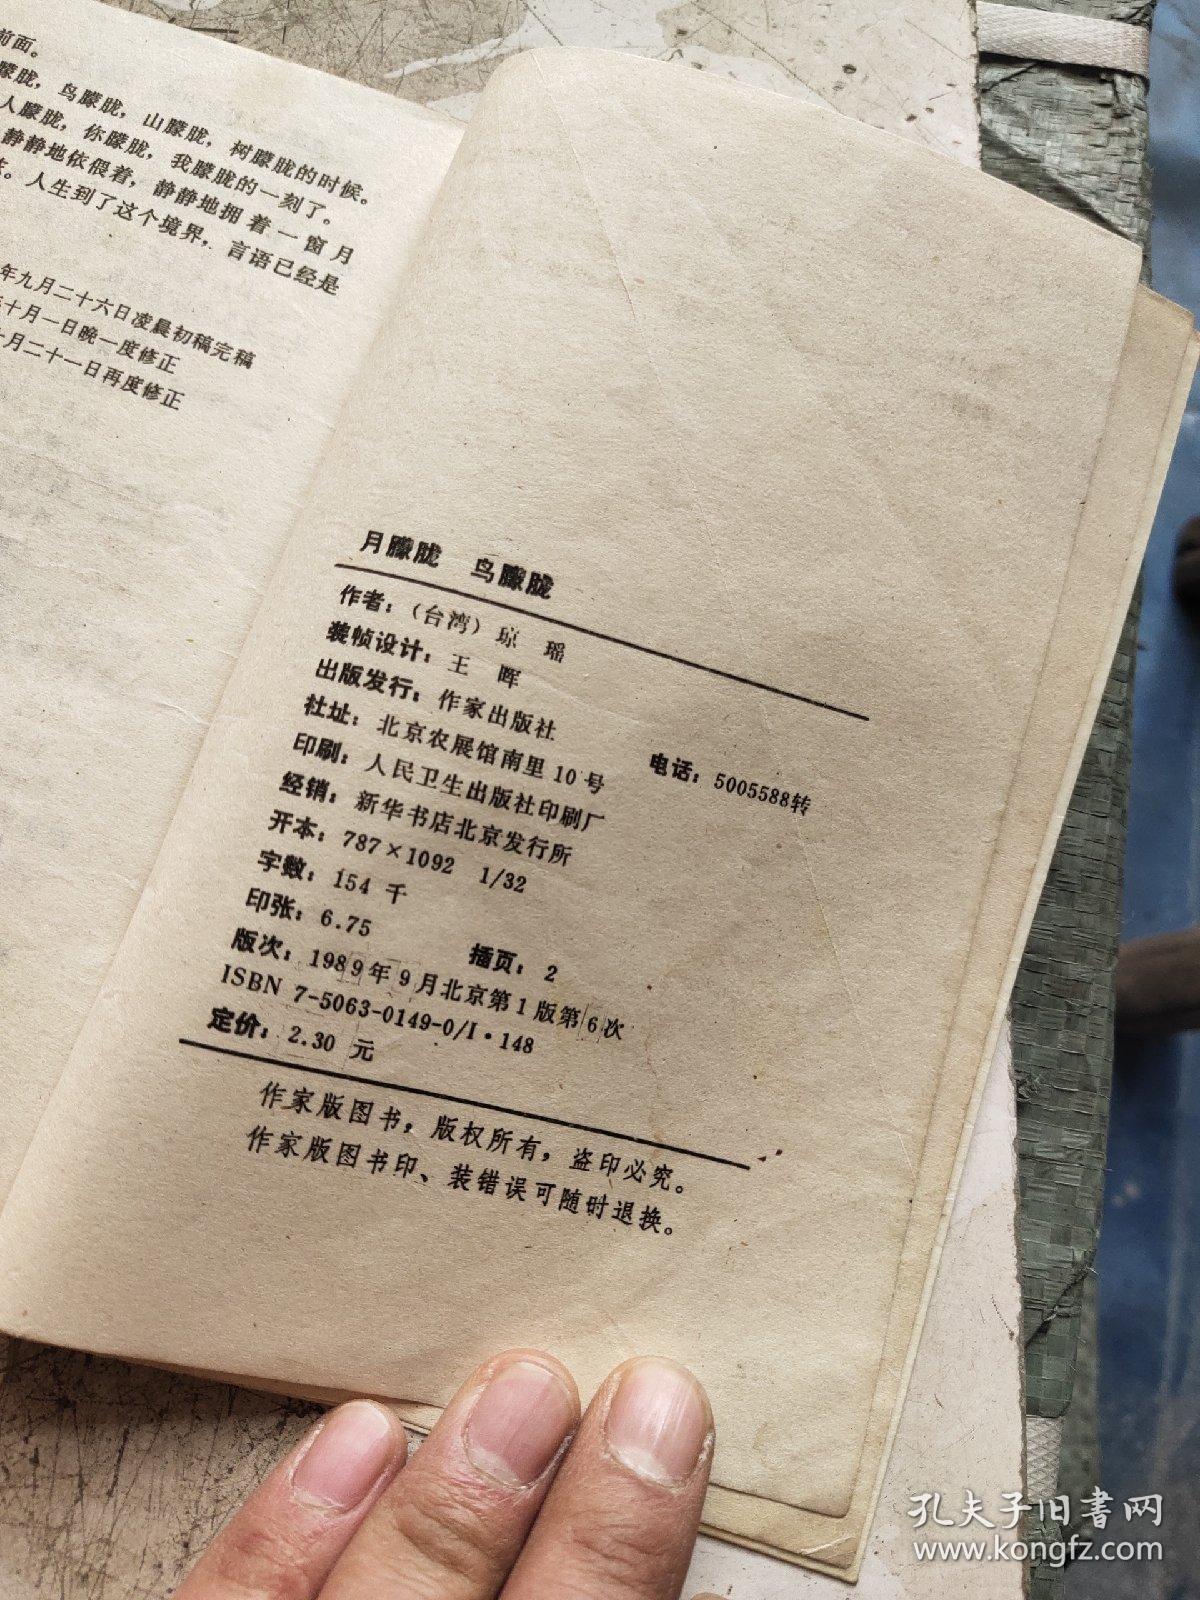 前面。
朦胧，鸟朦胧，山朦胧，树朦胧的时候。
人朦胧，你朦胧，我朦胧的一刻了。
静静地依偎着，静静地拥着一窗月
。人生到了这个境界，言语已经是
年九月二十六日凌晨初稿完稿
十月一日晚一度修正
月二十一日再度修正
月朦胧 鸟朦胧
作者：（台湾）琼 瑶
装帧设计：王 晖
出版发行：作家出版社
社址：北京农展馆南里10号 电话：5005588转
印刷：人民卫生出版社印刷厂
经销：新华书店北京发行所
开本：787×1092 1/32
字数：154 千
印张：6.75 插页：2
版次：1989年9月北京第1版第6次
ISBN 7-5063-0149-0/I·148
定价：2.30 元
作家版图书，版权所有，盗印必究。
作家版图书印、装错误可随时退换。
孔夫子旧書网
www.kongfz.com